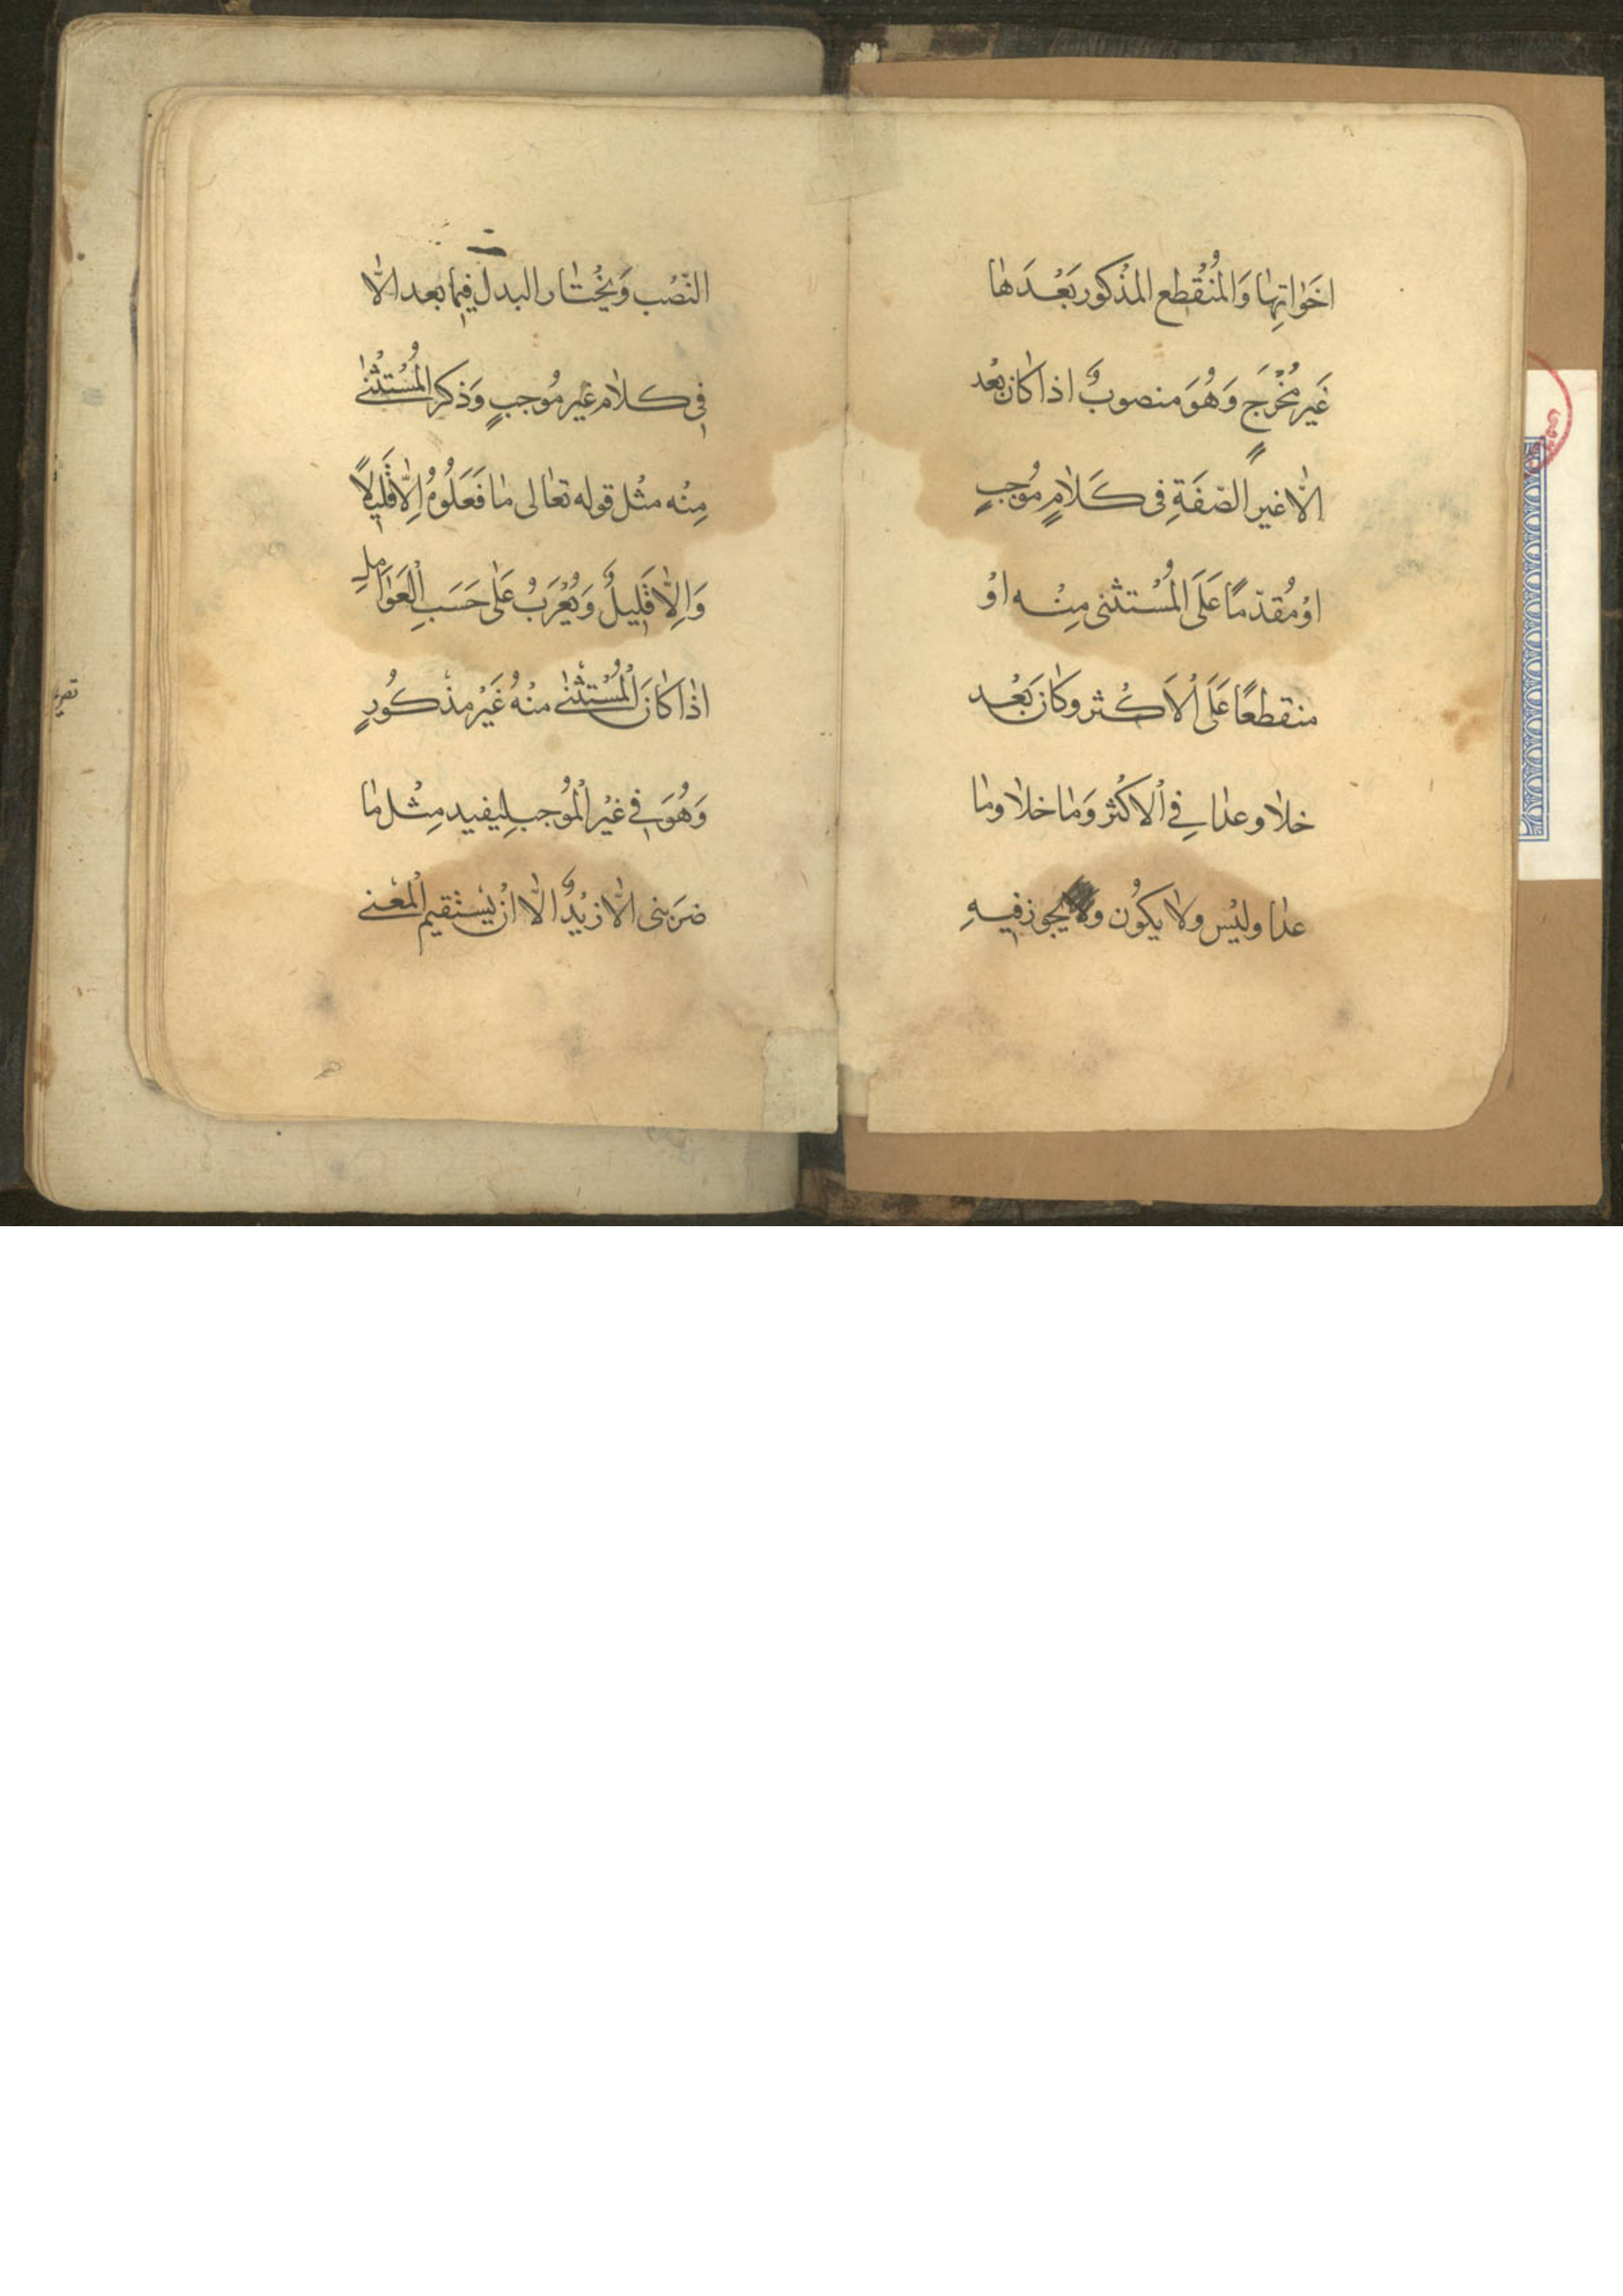 اخَوٰاتِهٰا وَالمُنْقُطِع المذْكور بَعْدَهٰا
غَير مُخْرَجٍ وَهُوَ منصوبٌ اذا كٰان بعْد
الّا غير الصّفَةِ فى كَلاٰمٍ مُوجبٍ
اوْ مُقدّمًا عَلَى المُسْتثنى مِنْه اوْ
منقطعًا عَلَى اْلاَكْثر وكٰان بَعْد
خلاٰ وعدٰا فِي اْلاكْثر وَمٰا خلاٰ ومٰا
عدٰا وليْس ولاٰ يكوُن ولاٰ يجوز فيهِ
النّصْب وَيخْتٰار البدل فيما بعد الّا
فى كلاٰم غير مُوجبٍ وَذكر المُسْتثْنىٰ
مِنْه مثْل قوله تعٰالى مٰا فَعَلُوهُ اِلّا قَلٖيلاً
وَاِلّا قَلٖيلٌ وَيُعْرَبُ عَلٰى حَسَبِ اْلعَوٰامِلِ
اذٰا كٰانَ اْلمُسْتثْنىٰ منْهُ غَيْر مذْكوُرٍ
وَهُوَ فٖي غيْر اْلمُوُجب لِيفيد مِثْل مٰا
ضرَبنى الّا زيْدٌ الّا انْ يَسْتقيم اْلمعْنى